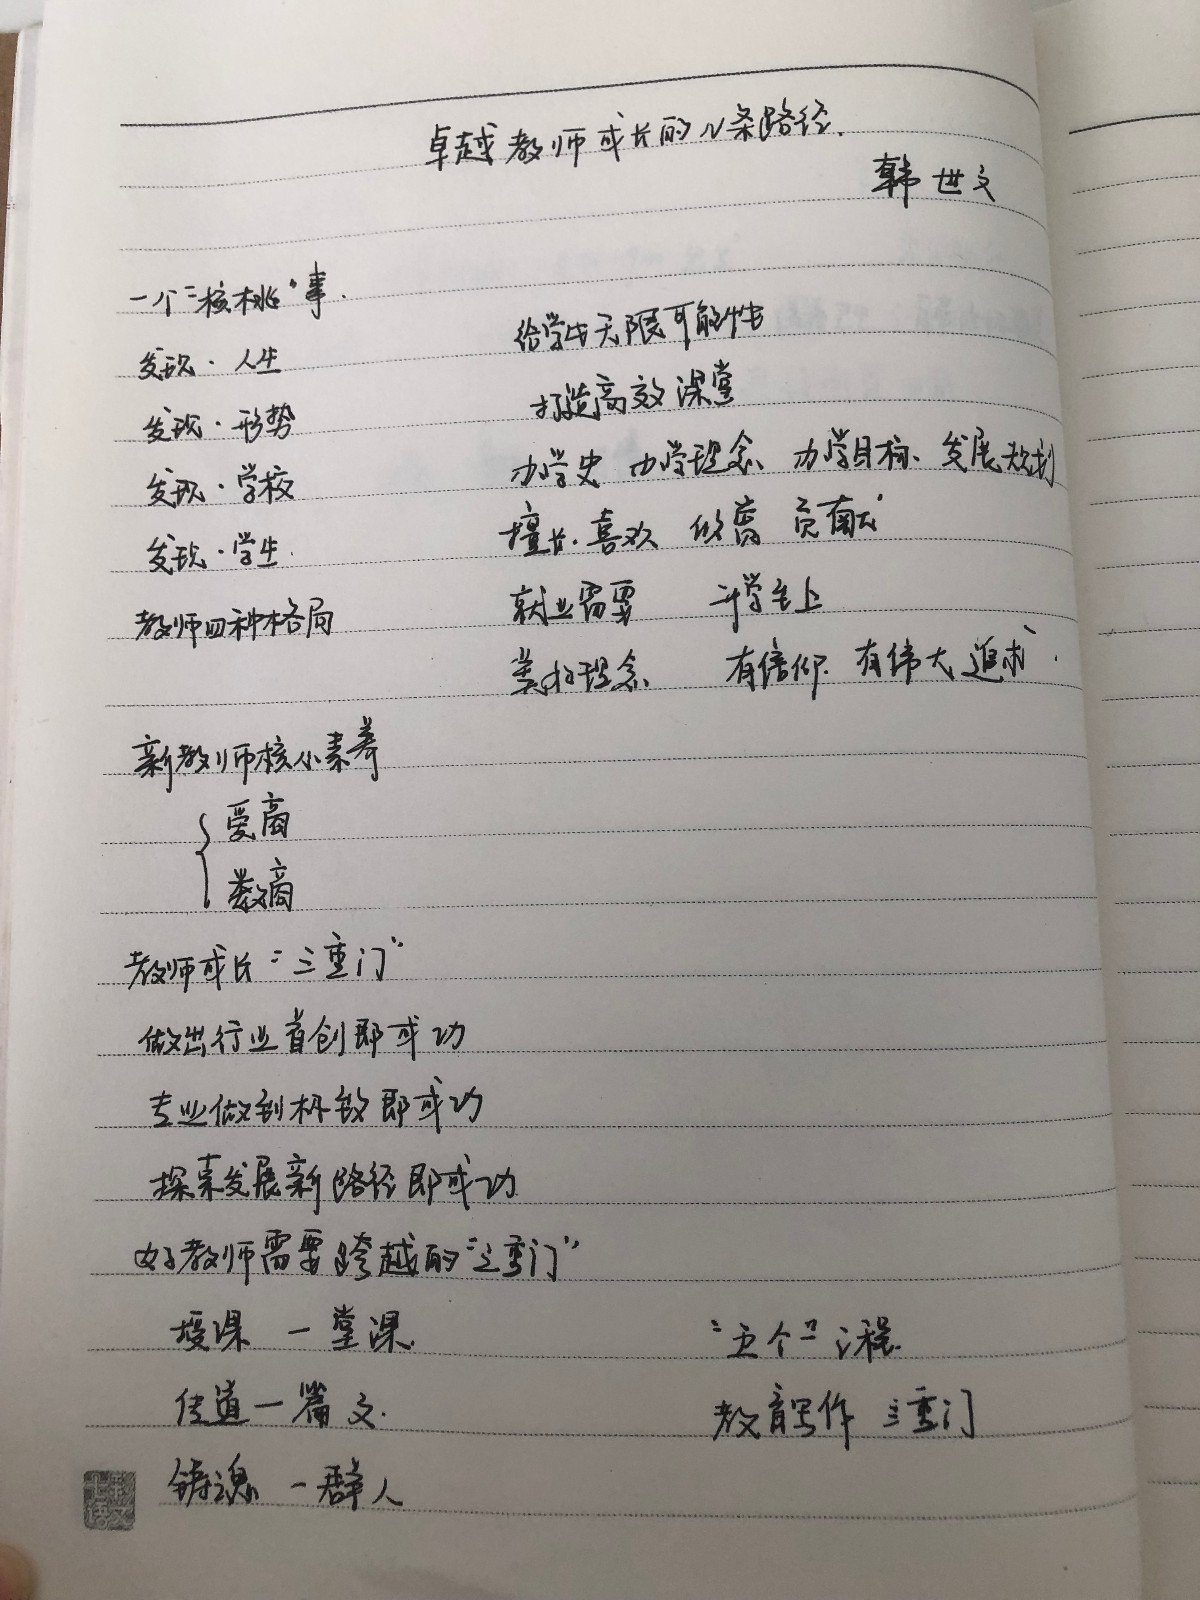 卓越教师成长的N条路径.
韩世文
一个"核桃"事.
发现·人生 给学生无限可能性
发现·形势 打造高效课堂
发现·学校 办学史 办学理念、办学目标、发展规划
发现·学生. 擅长.喜欢 做 贡献
教师四种格局 就业需要 升学至上
理念 有信仰. 有伟大追求.
新教师核心素养
爱商
数商
教师成长"三重门"
做出行业首创即成功
专业做到极致即成功
探索发展新路径即成功
好教师需要跨越的"三重门"
授课 一堂课. "五个"工程.
传道一篇文. 教育写作 三重门
铸魂 一群人